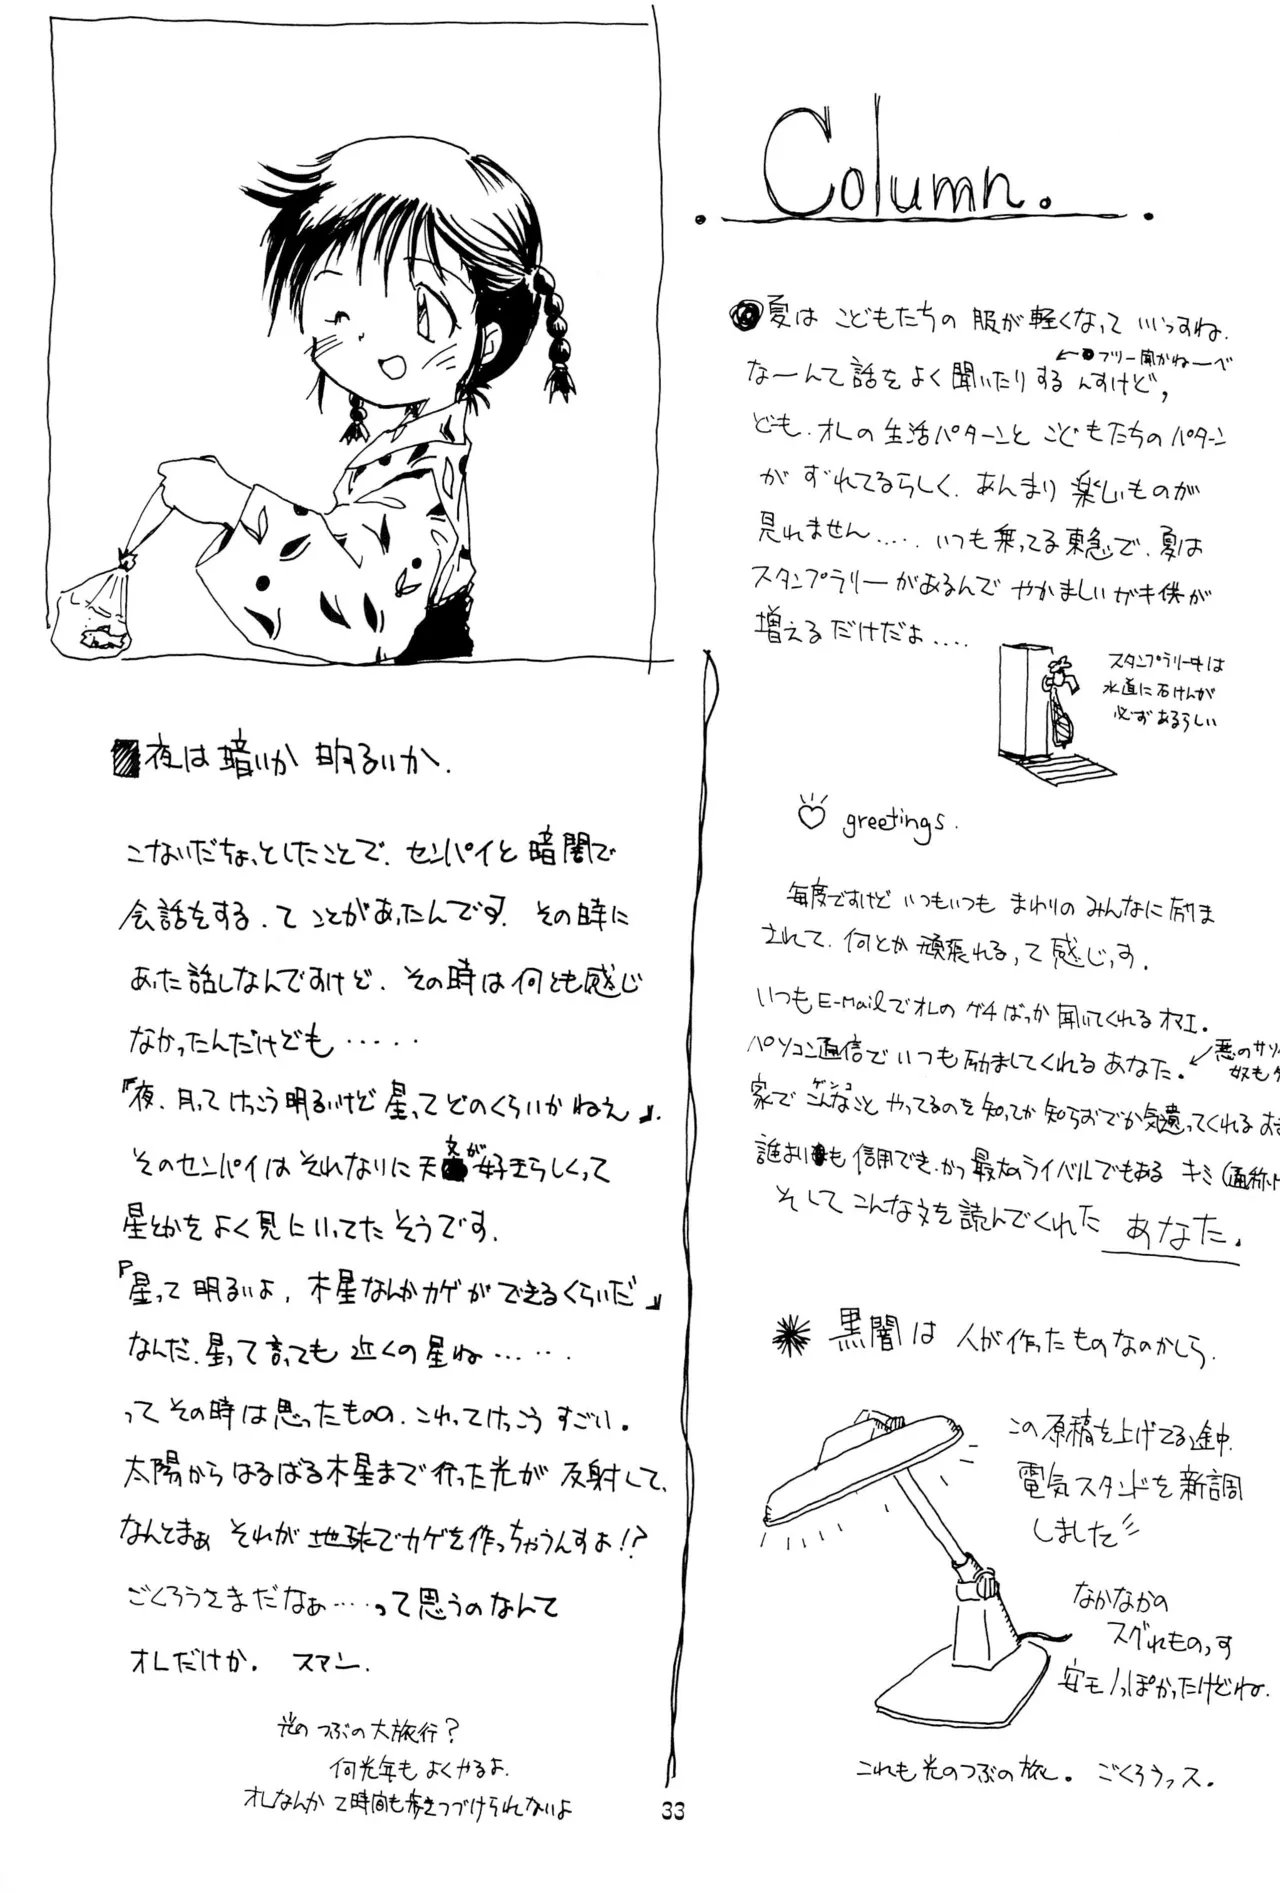 Column.
夏は こどもたちの 服が軽くなって いいっすね.
←●フリー聞かねーべ
なーんて話をよく聞いたりするんすけど,
ども.オレの生活パターンと こどもたちのパターン
が ずれてるらしく. あんまり 楽しいものが
見れません..... いつも乗ってる東急で.夏は
スタンプラリーがあるんで やかましいガキ供が
増えるだけだよ....
スタンプラリー中は
水道に石けんが
必ずあるらしい
greetings.
毎度ですけど いつもいつも まわりの みんなに励ま
されて. 何とか頑張れる、って感じっす.
いつもE-Mailでオレの グチばっか 聞いてくれるオマエ.
パソコン通信で いつも励ましてくれる あなた.
←悪のサソイ
奴も
ゲンコ
家で こんなこと やってるのを 知ってか知らずでか気遣ってくれる
誰よりも 信用でき.かつ 最大のライバルでもある キミ(通称
そして こんな文を読んでくれた あなた.
黒闇は 人が作ったものなのかしら.
この原稿を上げてる途中.
電気スタンドを新調
しました
なかなかの
スグれものっす
安モノっぽかったけどね.
これも 光のつぶの旅し. ごくろうっス.
夜は暗いか 明るいか.
こないだちょっとしたことで. センパイと 暗闇で
会話をする.て ことがあったんです. その時に
あった話しなんですけど. その時は何とも感じ
なかったんだけども.....
『夜.月ってけっこう明るいけど 星ってどのくらいかねえ』.
そのセンパイは それなりに天文が好きらしくって
星とかをよく見にいってたそうです.
『星って 明るいよ. 木星なんかカゲができるくらいだ』
なんだ.星って言っても 近くの星ね.....
って その時は思ったものの.これってけっこう すごい.
太陽から はるばる木星まで行った光が 反射して.
なんとまぁ それが 地球でカゲを作っちゃうんすよ!?
ごくろうさまだなぁ....って思うのなんて
オレだけか. スマン.
光の つぶの大旅行?
何光年も よくやるよ.
オレなんか て時間も歩きつづけられないよ
33